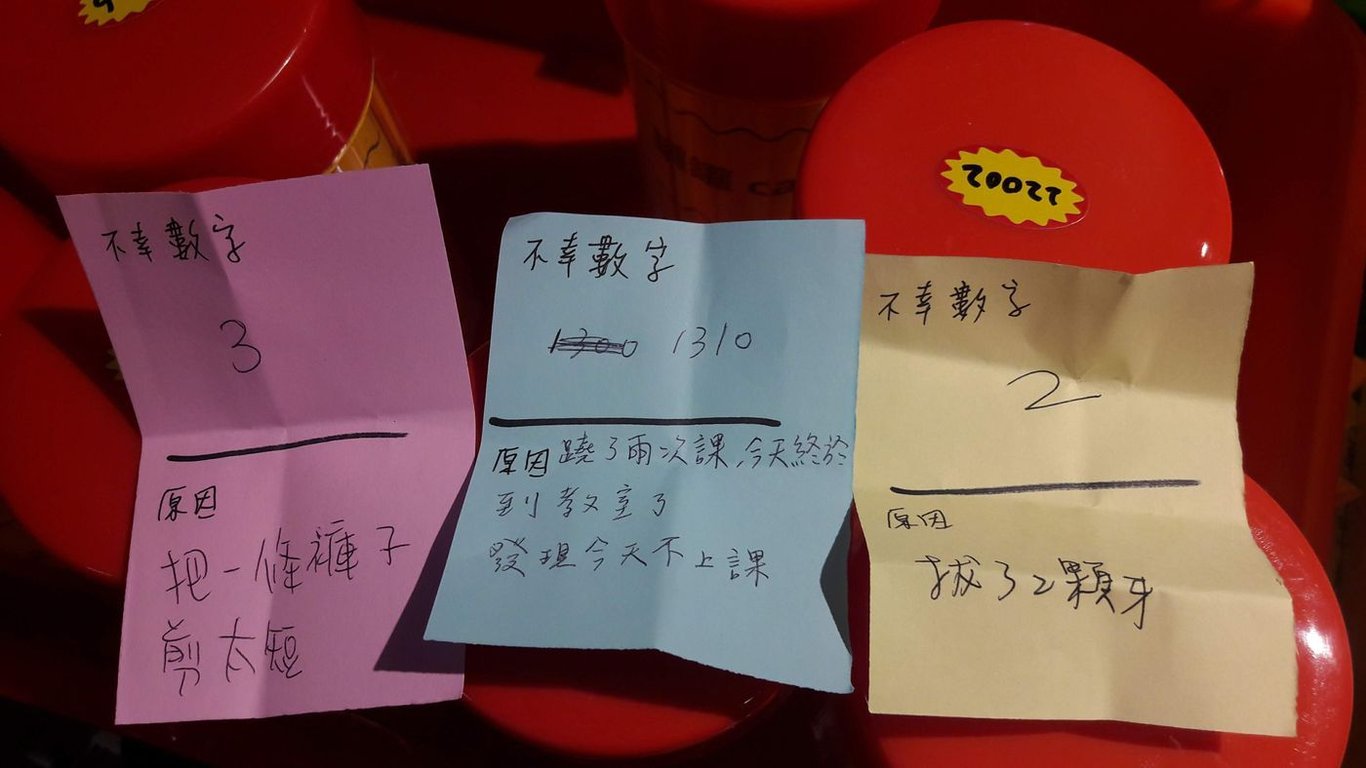 不幸數字
3
原因
把一條褲子
剪太短
不幸數字
1300 1310
原因 蹺了兩次課,今天終於
到教室了
發現今天不上課
20022
不幸數字
2
原因
拔了2顆牙